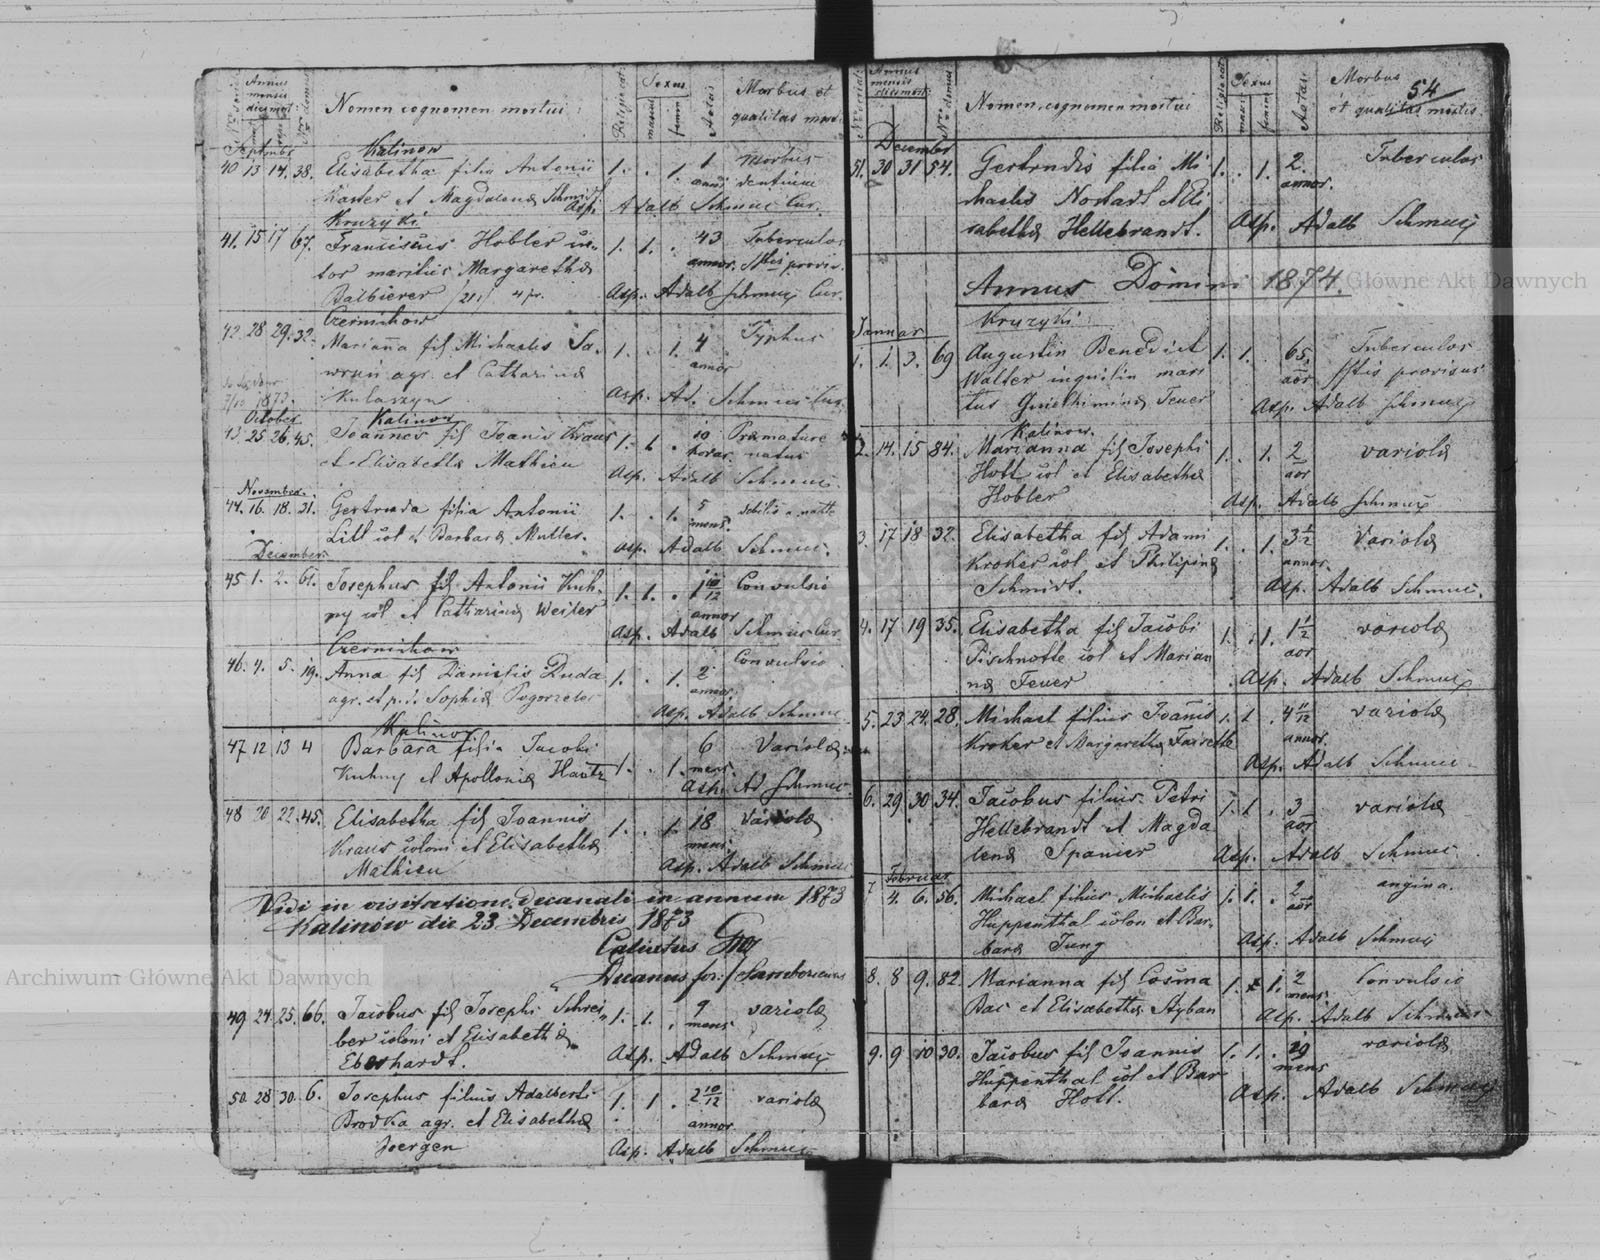 Annus mensis dies mort.
Nomen cognomen mortui
Religio cat.
Sexus
mascul
femin
Aetas
Morbus et
qualitas mort.
September
Kalinow
40 13 14. 38. Elisabetha filia Antonii 1. . 1. 1 Morbus
anni dentium
Koster et Magdalena Schmidt
Asp. Adalb Schmuc Cur.
Kruzyki
41. 15 17 67. Franciscus Hobler 1. 1. . 43 Tuberculos
tor maritus Margaretha annor. provis.
Balbierer Asp. Adalb Schmuc Cur.
Czernichow
42. 28 29. 32. Marianna fil Michaelis Sa 1. . 1. 4 Typhus
wrun agr. et Catharina annor
Kulaszyn Asp. Ad. Schmuc Cur.
1873.
October
Kalinow
43. 25 26. 45. Joannes fil Joanis Kraus 1. 1. 10 Praemature
horar. natus
et Elisabetha Mathieu
Asp. Adalb Schmuc
November
44. 16. 18. 31. Gertruda filia Antonii 1. . 1. 5 debilis a natu
mens.
Litt col et Barbara Muller.
Asp. Adalb Schmuc.
December
45 1. 2. 61. Josephus fil Antonii Kuh- 1. 1. . 1 10/12 Convulsio
ny col et Catharina Weiler annor
Asp. Adalb Schmuc Cur.
Czernichow
46. 4. 5. 19. Anna fil Danielis Duda 1. . 1. 2 Convulsio
agr. et p. Sophia Pogorzelec annor.
Asp. Adalb Schmuc
Kalinow
47 12 13 4 Barbara filia Jacobi 6 Variola
Kuhny et Apollonia Hautz 1. . 1. mens.
Asp. Ad Schmuc
48 20 22. 45. Elisabetha fil Joannis 1. . 1. 18 Variola
Kraus coloni et Elisabetha mens.
Mathieu Asp. Adalb Schmuc
Vidi in visitatione decanali in annum 1873
Kalinów die 23 Decembris 1873
Decanus for. Samboriensis
49 24. 25. 66. Jacobus fil Josephi Schrei 1. 1. . 9 variola
ber coloni et Elisabetha mens
Eberhardt. Asp. Adalb Schmuc
50. 28 30. 6. Josephus filius Adalberti 1. 1 . 2 10/12 variola
Brodka agr. et Elisabetha annor
Joergen Asp. Adalb Schmuc
54
Annus mensis dies mort.
Nro domus
Nomen, cognomen mortui
Religio cat
Sexus
mascul
femin
Aetas
Morbus
et qualitas mortis
December
51. 30 31 54. Gertrudis filia Mi 1. . 1. 2. Tuberculos
annor.
chaelis Nohadt et Eli
sabetha Hellebrandt. Asp. Adalb Schmucz
Annus Domini 1874.
Januar
Kruzyki
1. 1. 3. 69 Augustin Benedict 1. 1. . 65. Tuberculos
Walter inquilin mari aor provisus
tus Guilhimina Feuer Asp. Adalb Schmucz
Kalinow.
2. 14. 15 84. Marianna fil Josephi 1. . 1. 2 variola
Hott col et Elisabetha aor
Hobler Asp. Adalb Schmucz
3. 17 18 32. Elisabetha fil Adami 1. . 1. 3 1/2 Variola
Kroker col et Philipina annor
Schmidt. Asp. Adalb Schmuc.
4. 17 19 35. Elisabetha fil Jacobi 1. . 1. 1 1/2 variola
Pischnotte col et Marian aor
na Feuer Asp. Adalb Schmucz
5. 23 24. 28. Michael filius Joanis 1. 1 . 4 11/12 variola
Kroker et Margaretha Fairette annor.
Asp. Adalb Schmuc
6. 29 30 34. Jacobus filius Petri 1. 1 . 3 variola
Hellebrandt et Magda aor
lena Spanier Asp. Adalb Schmuc
Februar
7 4. 6. 56. Michael filius Michaelis 1. 1. . 2 angina.
Huppenthal colon et Bar- aor
bara Jung Asp. Adalb Schmucz
8. 8 9. 82. Marianna fil Cosma 1. 1. 2 Convulsio
Bac et Elisabetha Ayban mens
Asp. Adalb Schmuc
9. 9 10 30. Jacobus fil Joannis 1. 1. . 29 variola
Huppenthal col et Bar mens
bara Hott. Asp. Adalb Schmucz
Archiwum Główne Akt Dawnych
Archiwum Główne Akt Dawnych